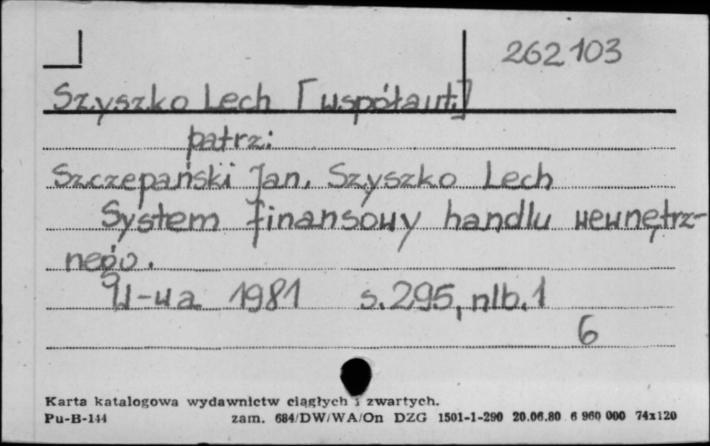 262103
Szyszko Lech [współaut.]
patrz:
Szczepański Jan, Szyszko Lech
System finansowy handlu wewnętrz-
nego.
W-wa 1981 s. 295, nlb. 1
6
Karta katalogowa wydawnictw ciągłych i zwartych.
Pu-B-144 zam. 684/DW/WA/On DZG 1501-1-290 20.06.80 6 960 000 74x120